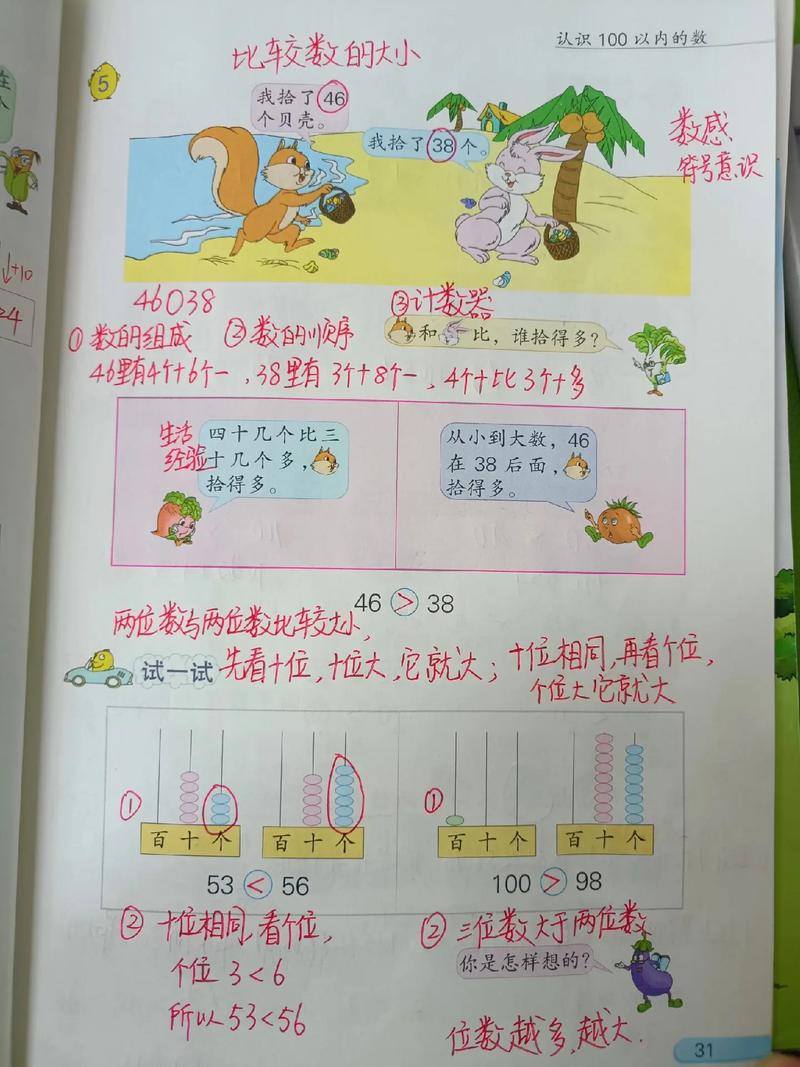 认识 100 以内的数
比较数的大小
5
我拾了46
个贝壳。
我拾了38个。
数感
符号意识
↓+10
46○38
③计数器
①数的组成 ②数的顺序
和 比，谁拾得多？
46里有4个十6个一，38里有3个十8个一，4个十比3个十多
生活
经验
四十几个比三
十几个多，
拾得多。
从小到大数，46
在 38 后面，
拾得多。
46 > 38
两位数与两位数比较大小，
试一试
先看十位，十位大，它就大；十位相同，再看个位，
个位大它就大
①
①
百 十 个
百 十 个
百 十 个
百 十 个
53 < 56
100 > 98
② 十位相同，看个位，
个位 3<6
所以 53<56
② 三位数大于两位数
你是怎样想的？
位数越多，越大.
31